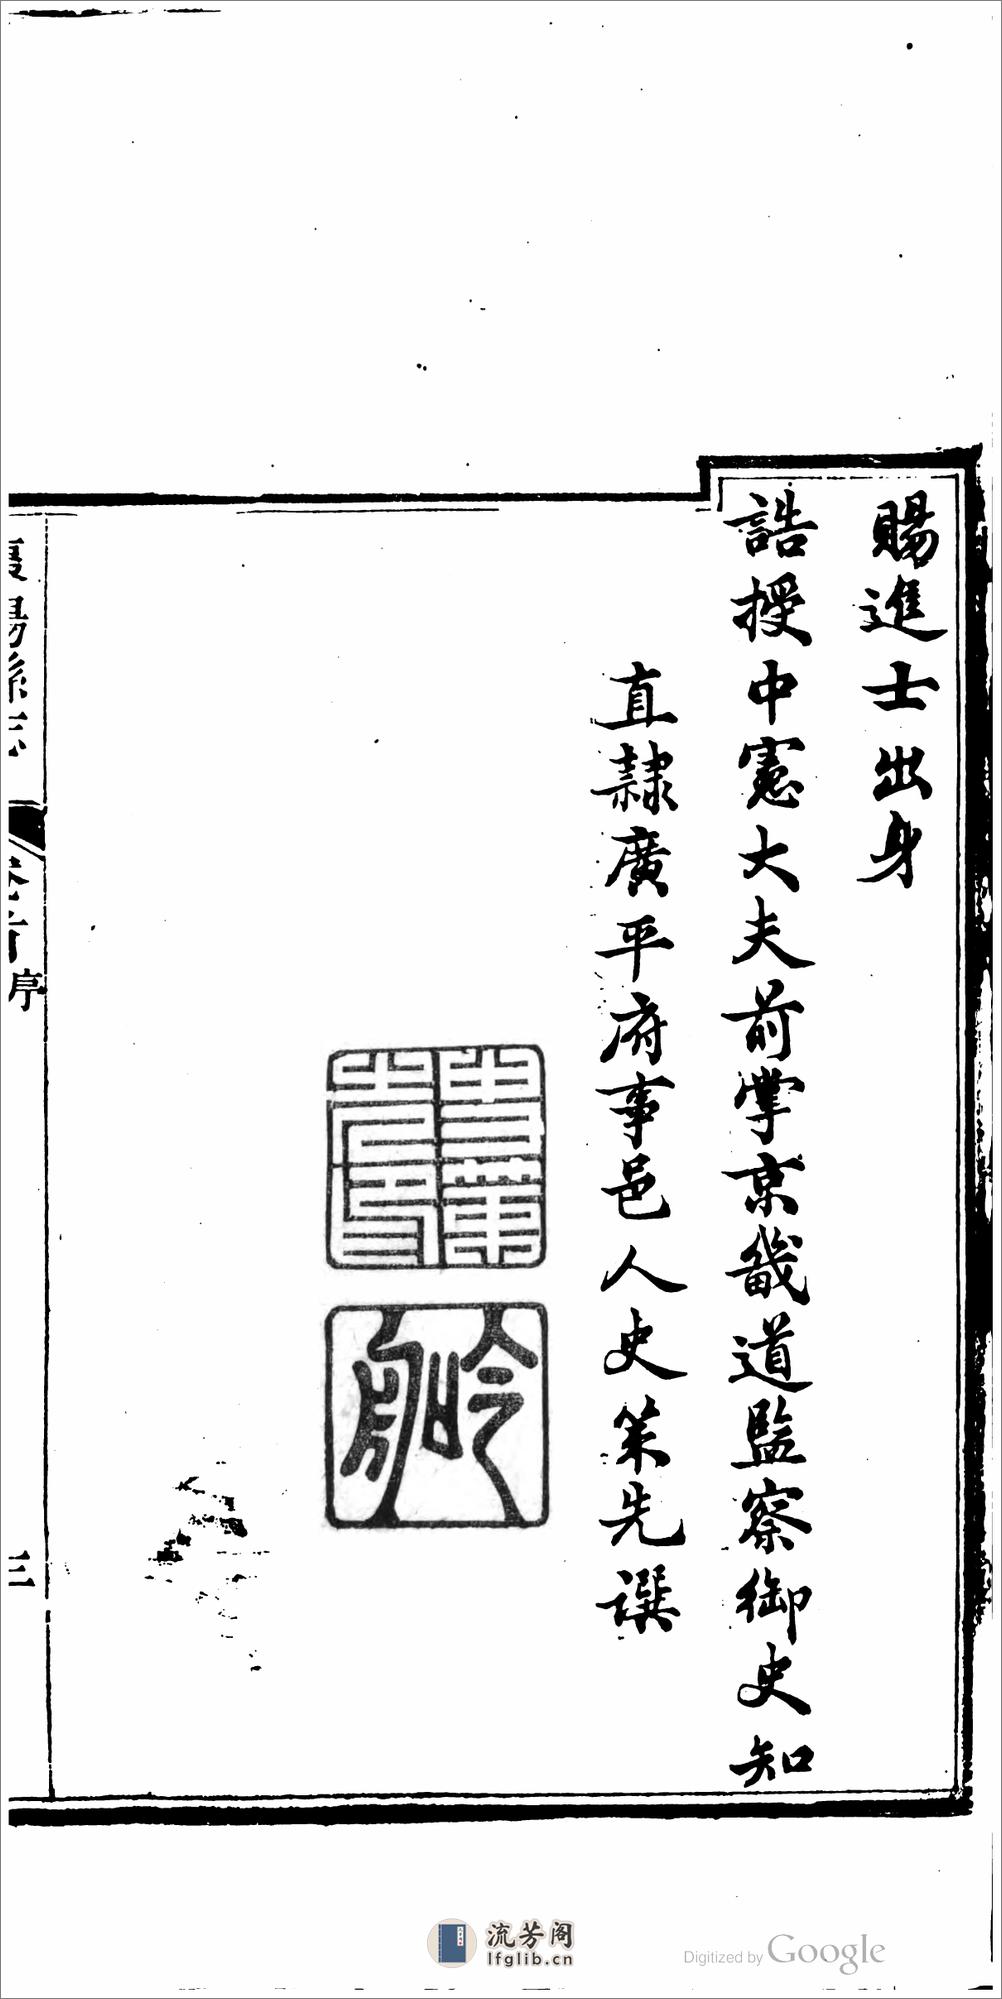 賜進士出身
誥授中憲大夫前掌京畿道監察御史知
直隸廣平府事邑人史策先譔
史策先印
吟舟
陽縣志
卷首
序
三
流芳阁
lfglib.cn
Digitized by Google